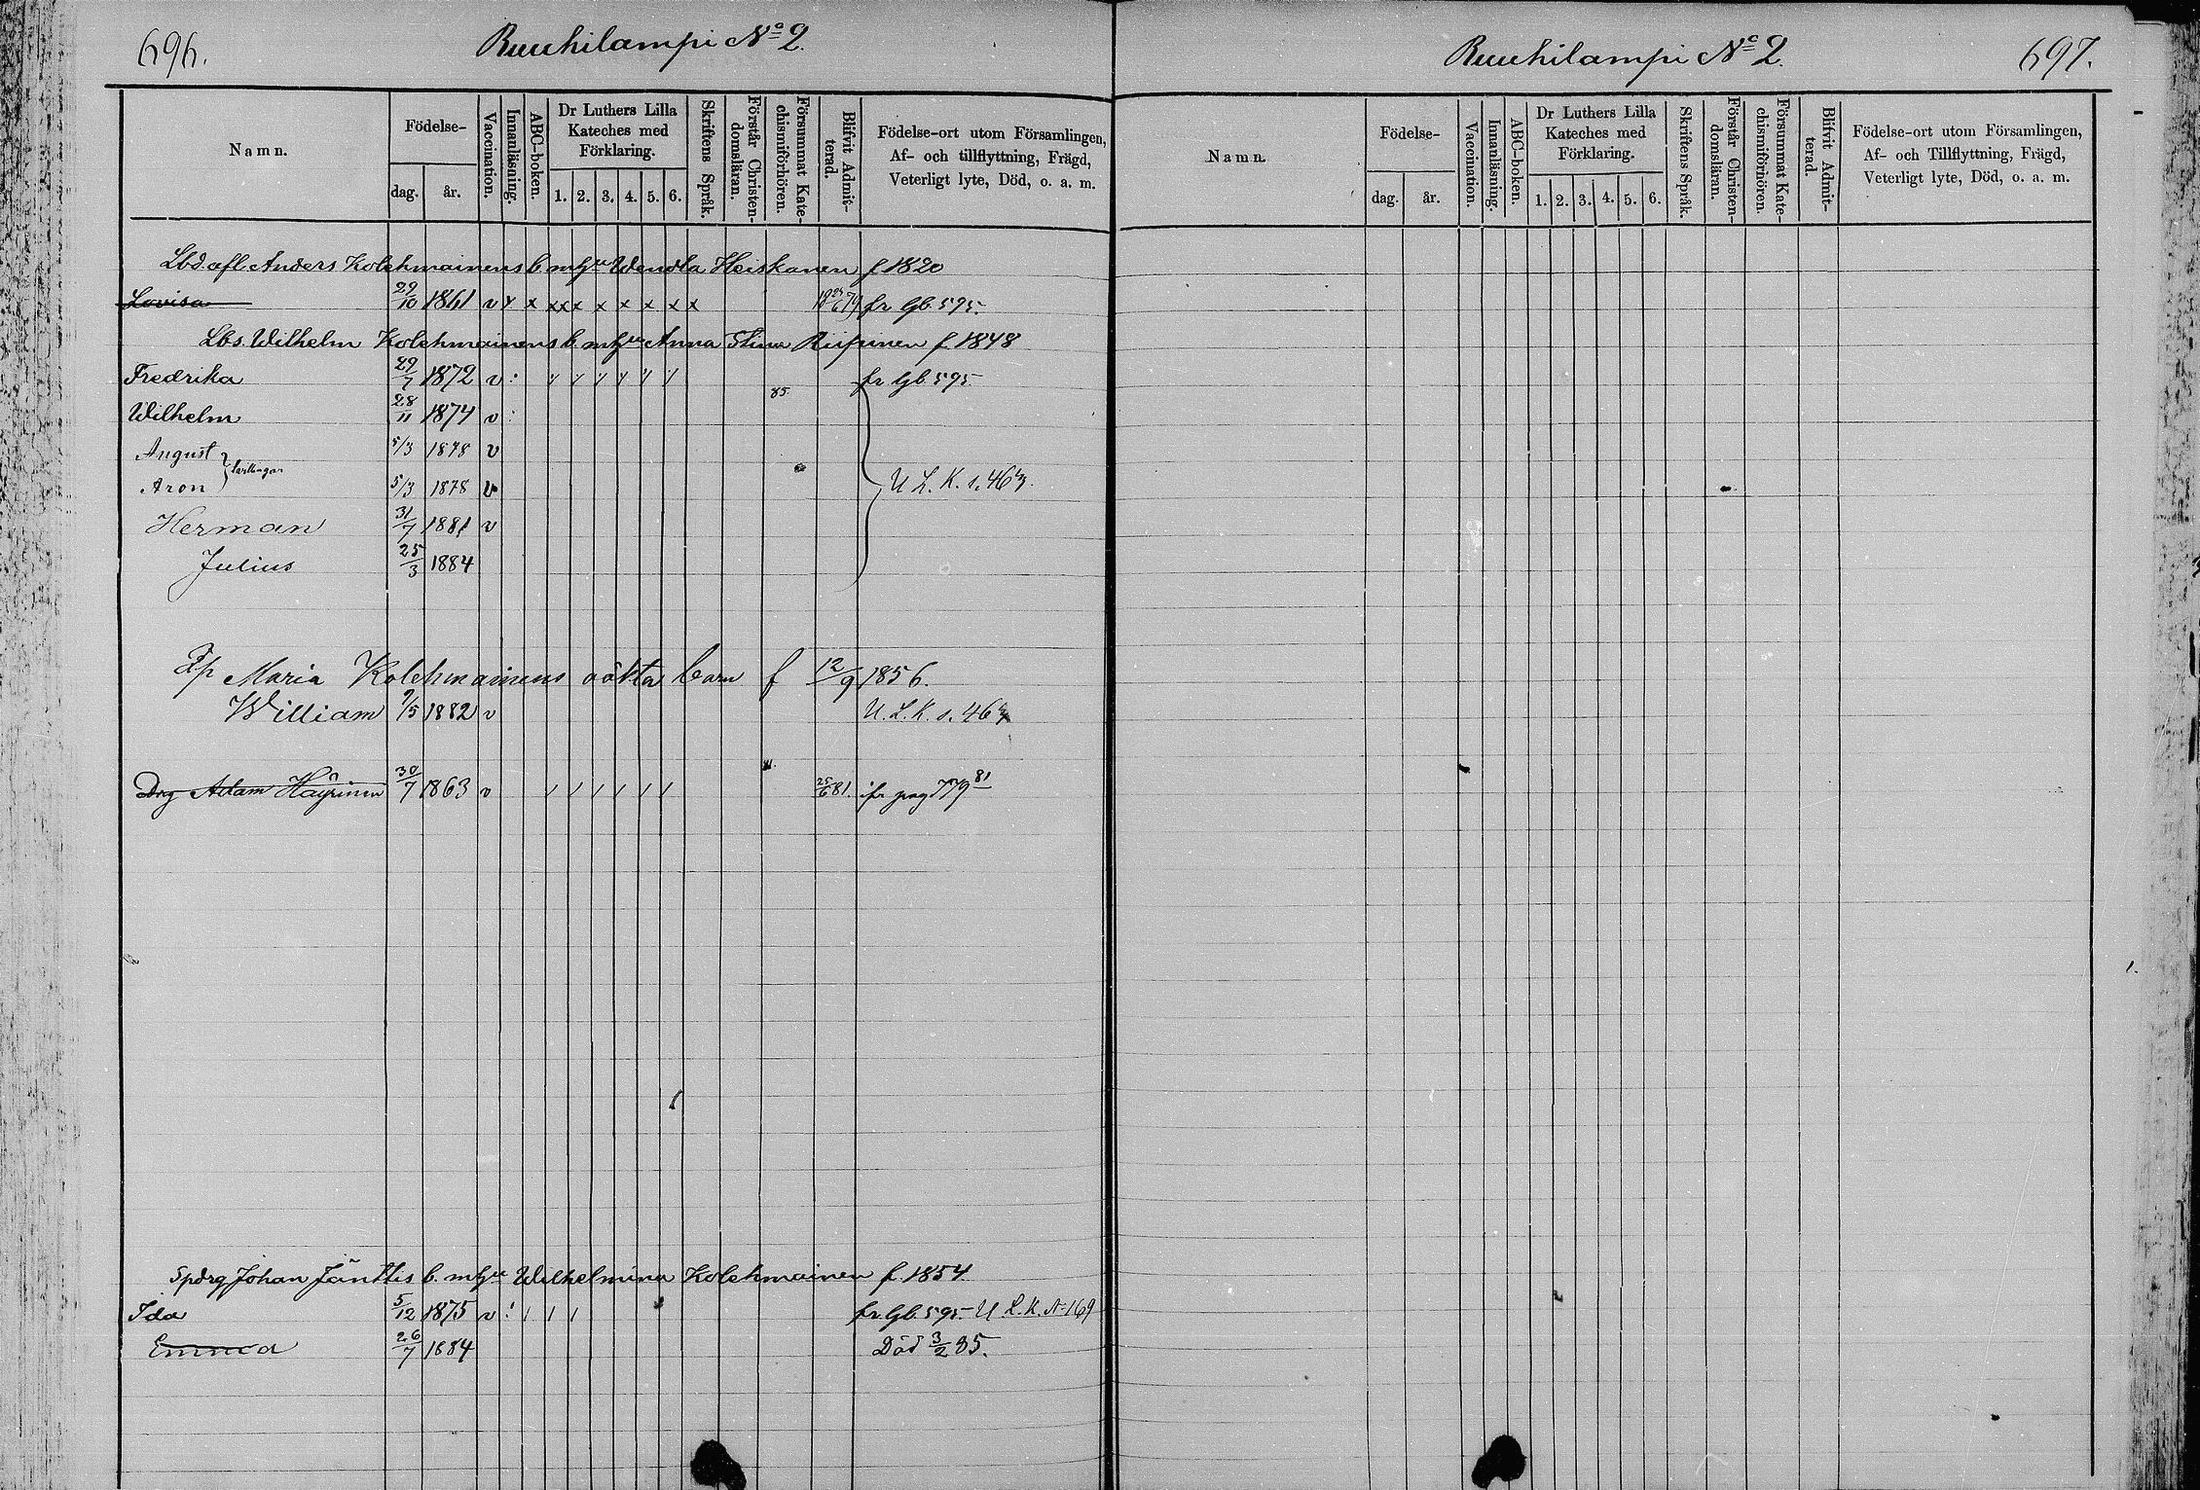 696.
Ruuhilampi No 2.
Namn.
Födelse-
dag.
år.
Vaccination.
Innanläsning.
ABC-boken.
Dr Luthers Lilla
Kateches med
Förklaring.
1. 2. 3. 4. 5. 6.
Skriftens Språk.
Förstår Christen-
domsläran.
Försummat Kate-
chismiförhören.
Blifvit Admit-
terad.
Födelse-ort utom Församlingen,
Af- och tillflyttning, Frägd,
Veterligt lyte, Död, o. a. m.
Lbd. afl. Anders Kolehmainens b. m hu Wendla Heiskanen f 1820
Lovisa 29/10 1861 v x x x x x x x x x x 79 fr Gb. 595.
Lbs. Wilhelm Kolehmainens b. m hu Anna Stina Riipinen f. 1848
Fredrika 29/7 1872 v : fr Gb. 595
85.
Wilhelm 28/11 1874 v :
August 5/3 1878 v
Aron 5/3 1878 v U L. K. s. 46
Herman 31/7 1881 v
Julius 25/3 1884
Maria Kolehmainens oäkta barn f 12/9 1856.
William 9/5 1882 v U. L. K. s. 46
Drg Adam Häyrinen 30/7 1863 v / / / / / / 25/6 81. ifr pag 779 81
Spdrg Johan Jänttis b. m hu Wilhelmina Kolehmainen f. 1854
Ida 5/12 1875 v : / / / fr Gb. 595. U L. K. 169
Emma 26/7 1884 Död 3/2 85.
Ruuhilampi No 2.
697.
Namn.
Födelse-
dag.
år.
Vaccination.
Innanläsning.
ABC-boken.
Dr Luthers Lilla
Kateches med
Förklaring.
1. 2. 3. 4. 5. 6.
Skriftens Språk.
Förstår Christen-
domsläran.
Försummat Kate-
chismiförhören.
Blifvit Admit-
terad.
Födelse-ort utom Församlingen,
Af- och Tillflyttning, Frägd,
Veterligt lyte, Död, o. a. m.